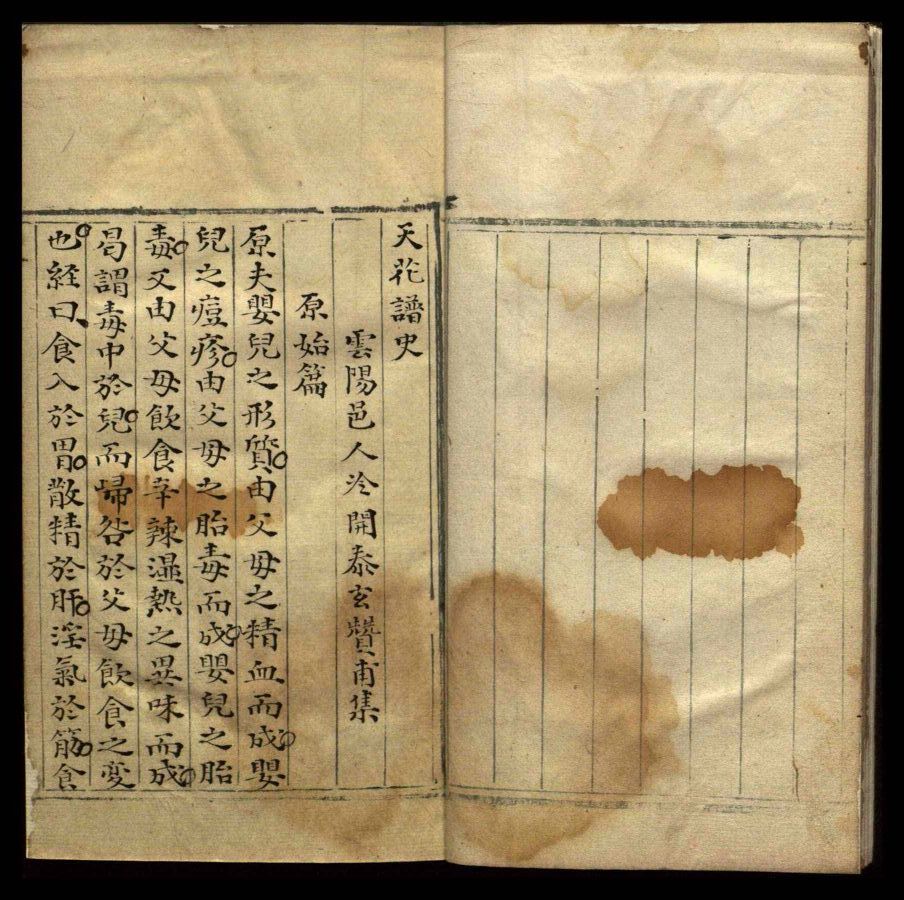 天花譜史
雲陽邑人冷開泰玄贊甫集
原始篇
原夫嬰兒之形質由父母之精血而成嬰
兒之痘疹由父母之胎毒而成嬰兒之胎
毒又由父母飲食辛辣濕熱之異味而成
曷謂毒中於兒而歸咎於父母飲食之变
也経曰食入於胃散精於肝淫氣於筋食